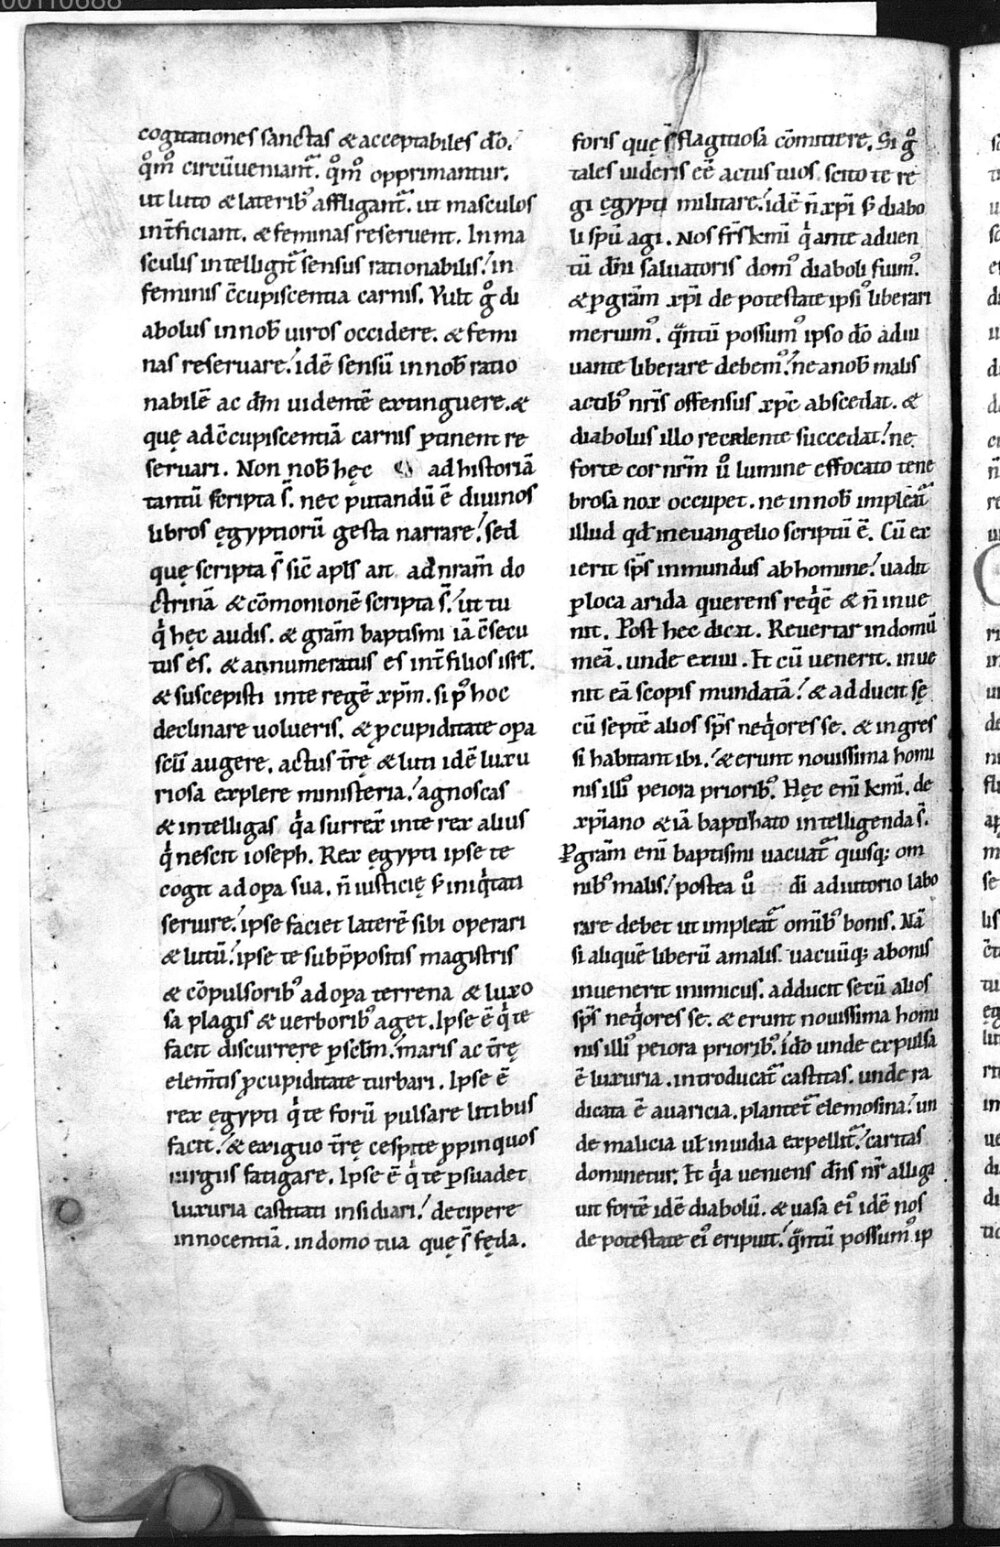 cogitationes sanctas & acceptabiles dō.
qͦm circūueniant᷑. qͦm opprimantur.
ut luto & laterib᷒ affligant᷑. ut masculos
int̄ficiant. & feminas reseruent. In ma
sculis intelligit᷑ sensus rationabilis. in
feminis c̄cupiscentia carnis. Vult gͦ di
abolus in nob̄ uiros occidere. & femi
nas reseruare. idē sensū in nob̄ ratio
nabilē ac dm̄ uidentē extinguere. &
quę ad c̄cupiscentiā carnis ꝑtinent re
seruari. Non nob̄ hęc ad historiā
tantū scripta s̄. nec putandū ē diuinos
libros ęgyptiorū gesta narrare. sed
quę scripta s̄ sic̄ apls̄ ait ad nram̄ do
ctrinā & cōmonionē scripta s̄. ut tu
qͥ hęc audis. & gram̄ baptismi iā c̄secu
tus es. & annumeratus es int̄ filios isrl̄.
& suscepisti in te regē xp̄m. si pͦ hoc
declinare uolueris. & ꝑ cupiditatē opa
scl̄i augere. actus tr̄ę & luti idē luxu
riosa explere ministeria. agnoscas
& intelligas qͥa surrex̄ in te rex alius
qͥ nescit ioseph. Rex ęgypti ipse te
cogit ad opa sua. n̄ iusticię s; iniqͥtati
seruire. ipse faciet laterē sibi operari
& lutū. ipse te subp̄positis magistris
& cōpulsorib᷒ ad opa terrena & luxo
sa plagis & uerborib᷒ aget. Ipse ē qͥ te
facit discurrere ꝑ sclm̄. maris ac tr̄ę
elem̄tis ꝑ cupiditate turbari. Ipse ē
rex ęgypti qͥ te forū pulsare litibus
facit. & exiguo tr̄ę cespite ꝓpinquos
iurgiis fatigare. Ipse ē qͥ te ꝑsuadet
luxuria castitati insidiari. decipere
innocentiā. in domo tua quę s̄ fęda.
foris quę s̄ flagitiosa cōmittere. Si gͦ
tales uideris eē actus tuos scito te re
gi ęgypti militare. idē n̄ xp̄i s; diabo
li spū agi. Nos frs̄ kmī qͥ ante aduen
tū dn̄i saluatoris dom᷒ diaboli fuim᷒.
& ꝑ grām xp̄i de potestate ipsi᷒ liberari
meruim᷒. qͣntū possum᷒ ipso dō adiu
uante liberare debem᷒. ne a nob̄ malis
actib᷒ nr̄is offensus xp̄c abscedat. &
diabolus illo recedente succedat. ne
forte cor nrm̄ uͦ lumine effocato tene
brosa nox occupet. ne in nob̄ impleat᷑
illud qd̄ in euangelio scriptū ē. Cū ex
ierit sp̄s inmundus ab homine. uadit
ꝑ loca arida querens reqͥē & n̄ inue
nit. Post hec dicit. Reuertar in domū
meā. unde exiui. Et cū uenerit. inue
nit eā scopis mundatā. & adducit sę
cū septē alios sp̄s neqͥores se. & ingres
si habitant ibi. & erunt nouissima homi
nis illi᷒ peiora priorib᷒. Hęc enī kmī. de
xp̄iano & iā baptizato intelligenda s̄.
Ꝑ grām enī baptismi uacuat᷑ quisq; om
nib᷒ malis. postea uͦ di adiutorio labo
rare debet ut impleat᷑ omīb᷒ bonis. Nā
si aliquē liberū a malis. uacuūq; a bonis
inuenerit inimicus. adducit secū alios
sp̄s neqͥores se. & erunt nouissima homi
nis illi᷒ peiora priorib᷒. ido unde expulsa
ē luxuria. introducat᷑ castitas. unde ra
dicata ē auaricia. plantet᷑ elemosina. un
de malicia ul̄ inuidia expellit᷑. caritas
dominetur. Et qͥa ueniens dn̄s nr̄ alliga
uit fortē idē diabolū. & uasa ei᷒ idē nos
de potestate ei᷒ eripuit. qͣntū possum᷒ ip